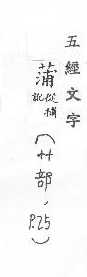 五經文字
蒲從捕訛
(艸部，P.25)